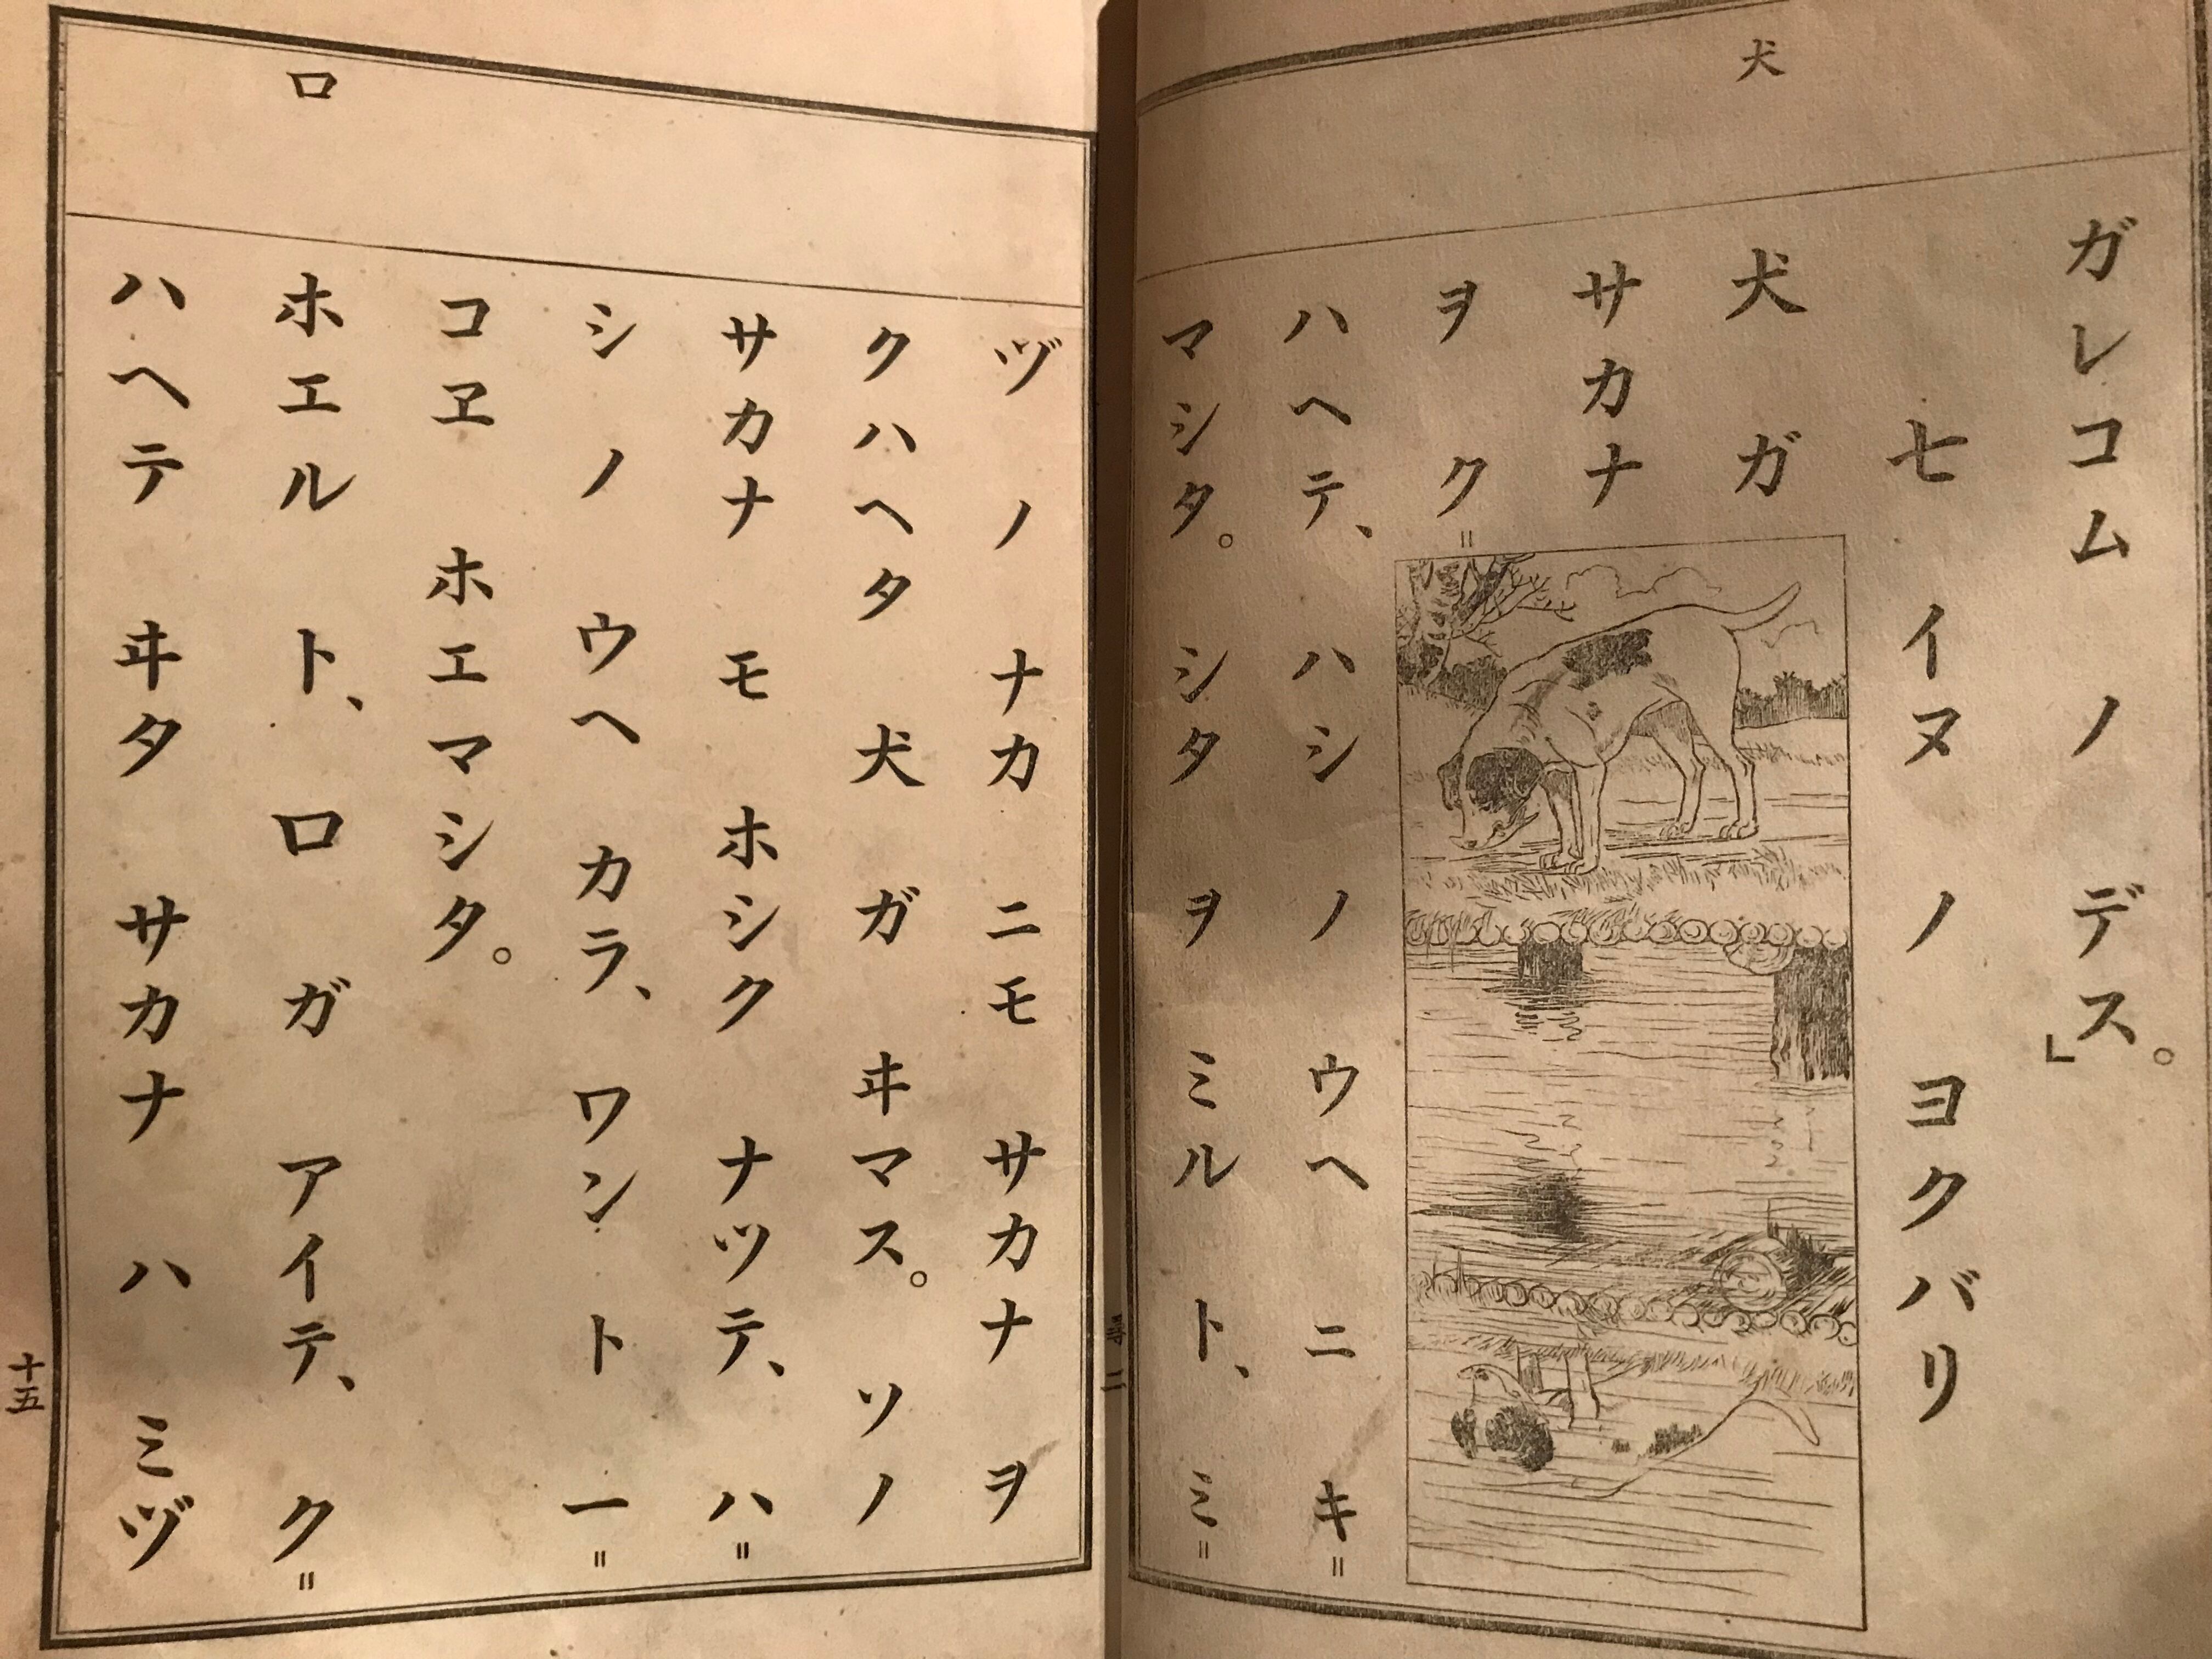 犬
ガレコム ノ デス。」
七 イヌ ノ ヨクバリ
犬 ガ
サカナ
ヲ ク=
ハヘテ、 ハシ ノ ウヘ ニ キ=
マシタ。 シタ ヲ ミル ト、 ミ=
口
ヅ ノ ナカ ニモ サカナ ヲ
クハヘタ 犬 ガ ヰマス。 ソノ
サカナ モ ホシク ナツテ、 ハ=
シ ノ ウヘ カラ、 ワン ト 一=
コヱ ホエマシタ。
ホエル ト、 口 ガ アイテ、 ク=
ハヘテ ヰタ サカナ ハ ミヅ
十五